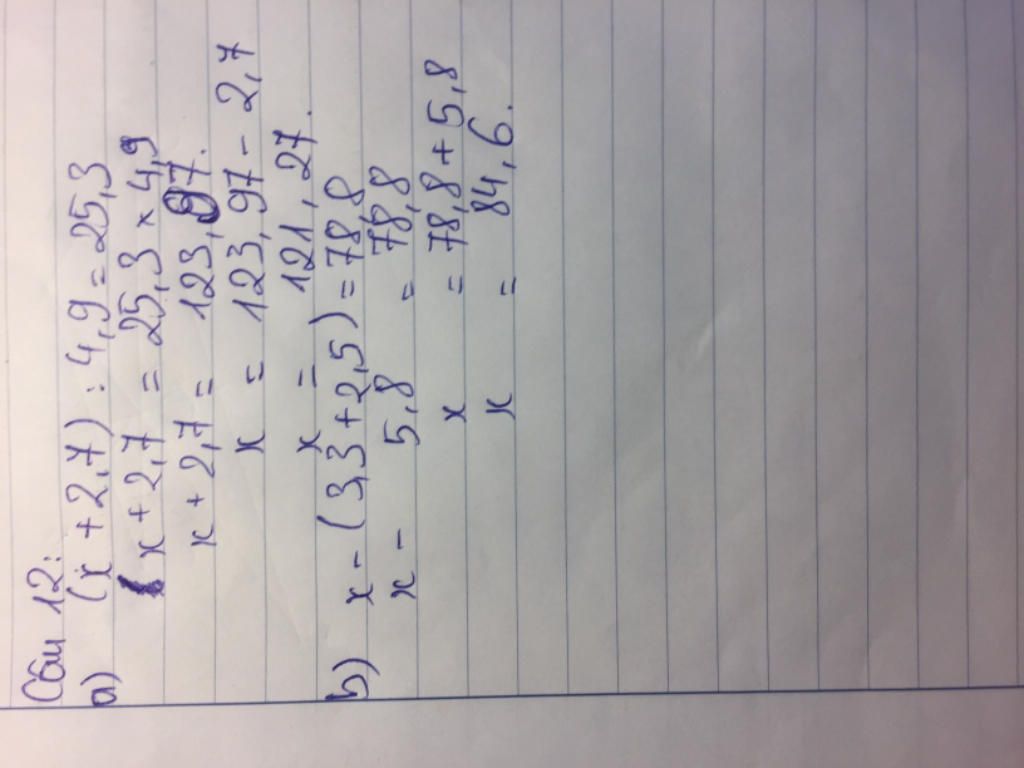 Câu 12:
a) (x + 2,7) : 4,9 = 25,3
x + 2,7 = 25,3 x 4,9
x + 2,7 = 123,97.
x = 123,97 - 2,7
x = 121,27.
b) x - (3,3 + 2,5) = 78,8
x - 5,8 = 78,8
x = 78,8 + 5,8
x = 84,6.